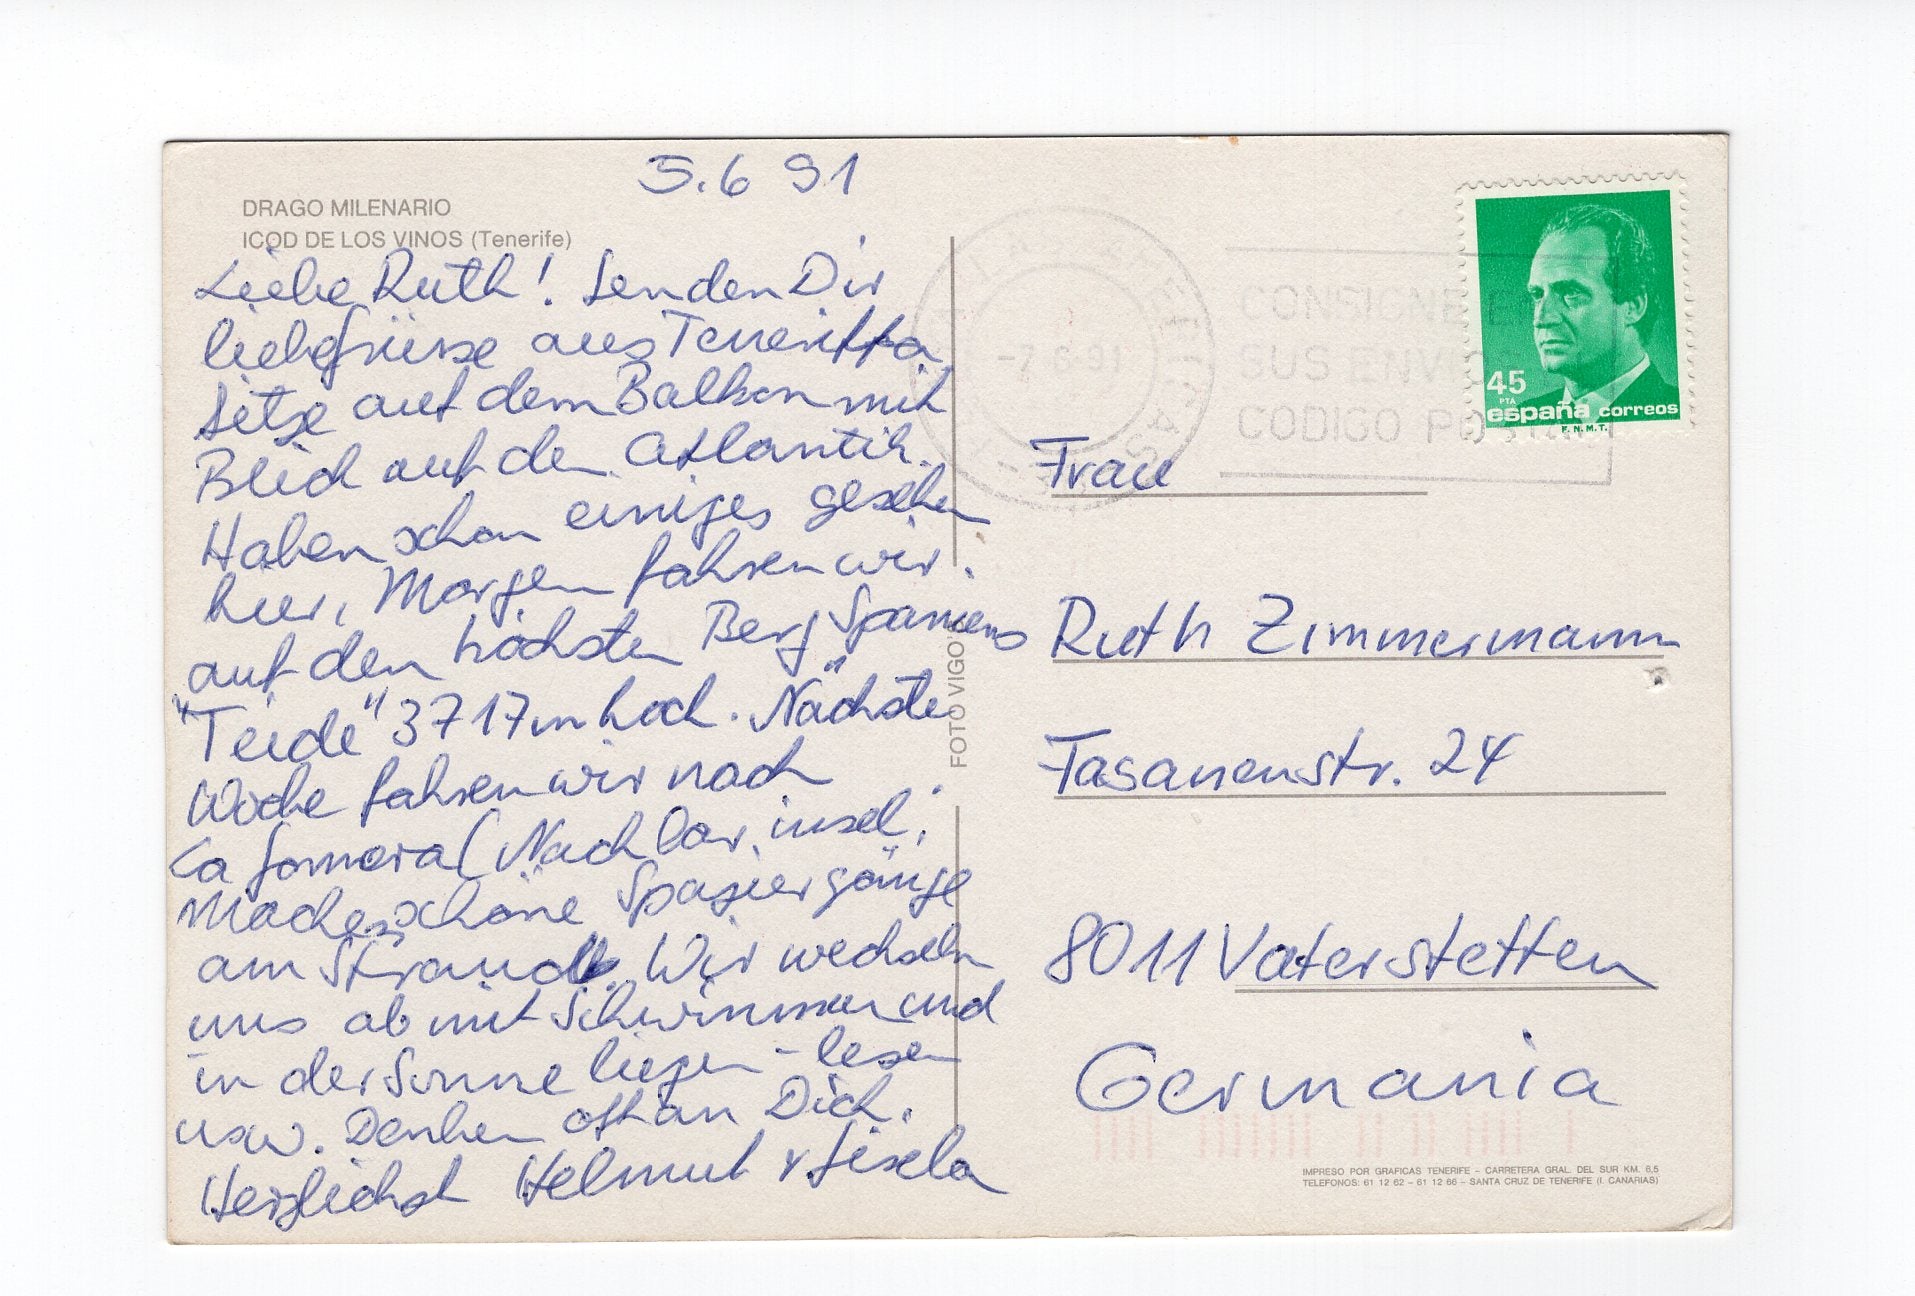 5.6 91
DRAGO MILENARIO
ICOD DE LOS VINOS (Tenerife)
Liebe Ruth! Senden Dir
liebe grüsse aus Teneriffa
Sitze auf dem Balkon mit
Blick auf den Atlantik.
Haben schon einiges gesehen
hier, Morgen fahren wir
auf den höchsten Berg Spaniens
"Teide" 3717m hoch. Nächste
Woche fahren wir nach
La Gomera (Nachbar insel,
Machen schöne Spaziergänge
am Strand. Wir wechseln
uns ab mit Schwimmen und
in der Sonne liegen - lesen
usw. Denken oft an Dich.
Herzlichst Helmut + Gisela
FOTO VIGO
-7 6 91
CONSIGNE EN
SUS ENVIOS
CODIGO POSTAL
45
PTA
españa correos
F.N.M.T.
Frau
Ruth Zimmermann
Fasanenstr. 24
8011 Vaterstetten
Germania
IMPRESO POR GRAFICAS TENERIFE - CARRETERA GRAL. DEL SUR KM. 6,5
TELEFONOS: 61 12 62 - 61 12 66 - SANTA CRUZ DE TENERIFE (I. CANARIAS)